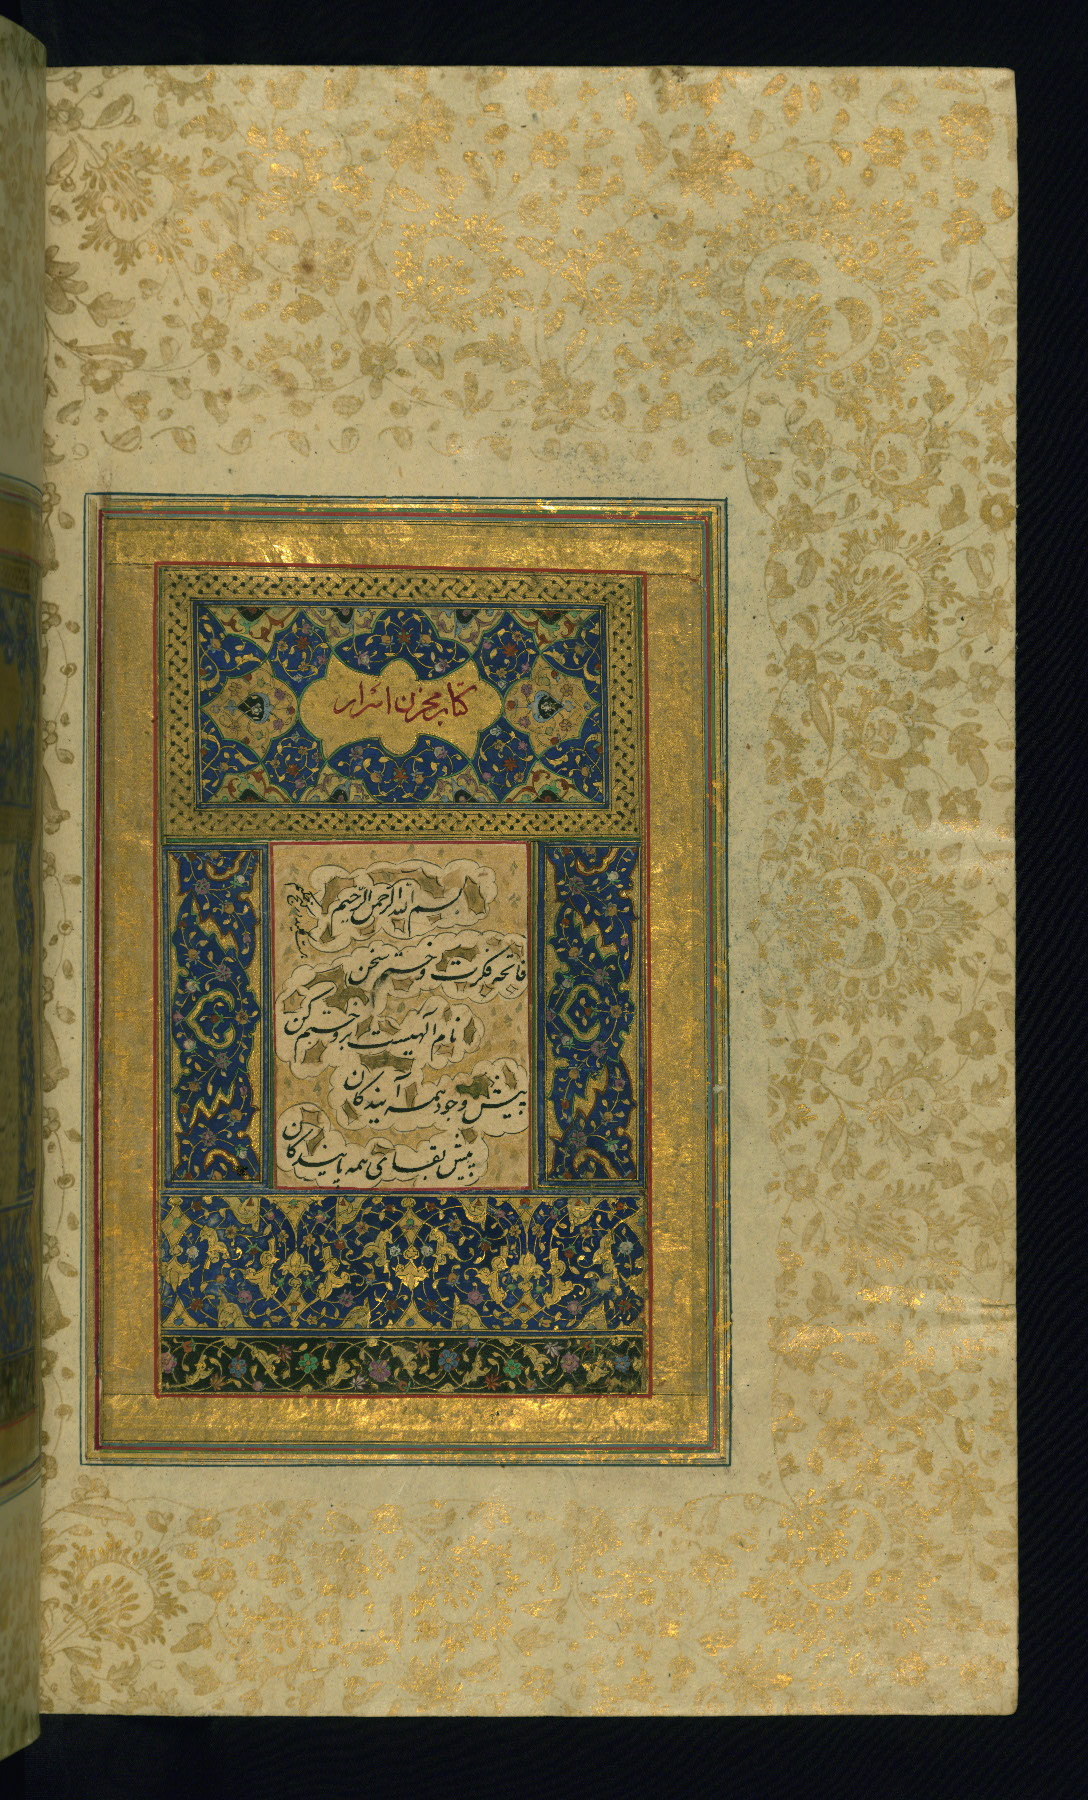 کتاب مخزن اسرار
بسم الله الرحمن الرحیم
هست کلید در گنج حکیم
فاتحه فکرت و ختم سخن
نام الهیست برو ختم کن
پیش وجود همه آیندگان
پیش بقای همه پایندگان